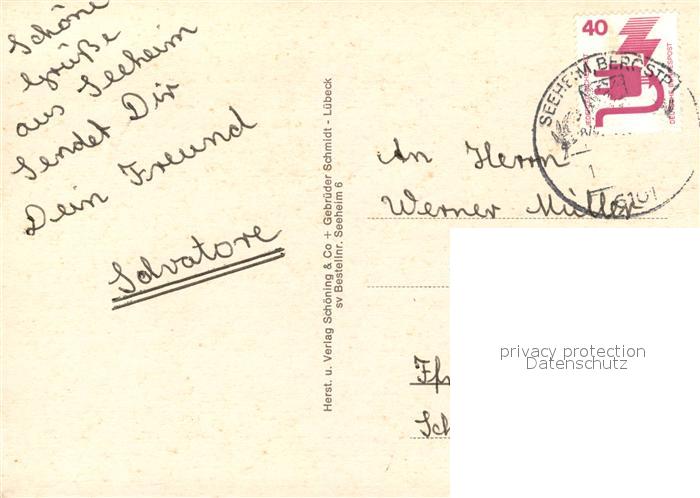 Schöne
Grüße
aus Seeheim
sendet Dir
Dein Freund
Salvatore
Herst. u. Verlag Schöning & Co + Gebrüder Schmidt - Lübeck
sv Bestellnr. Seeheim 6
40
SEEHEIM BERGSTR
1
6101
An Herrn
Werner Müller
privacy protection
Datenschutz